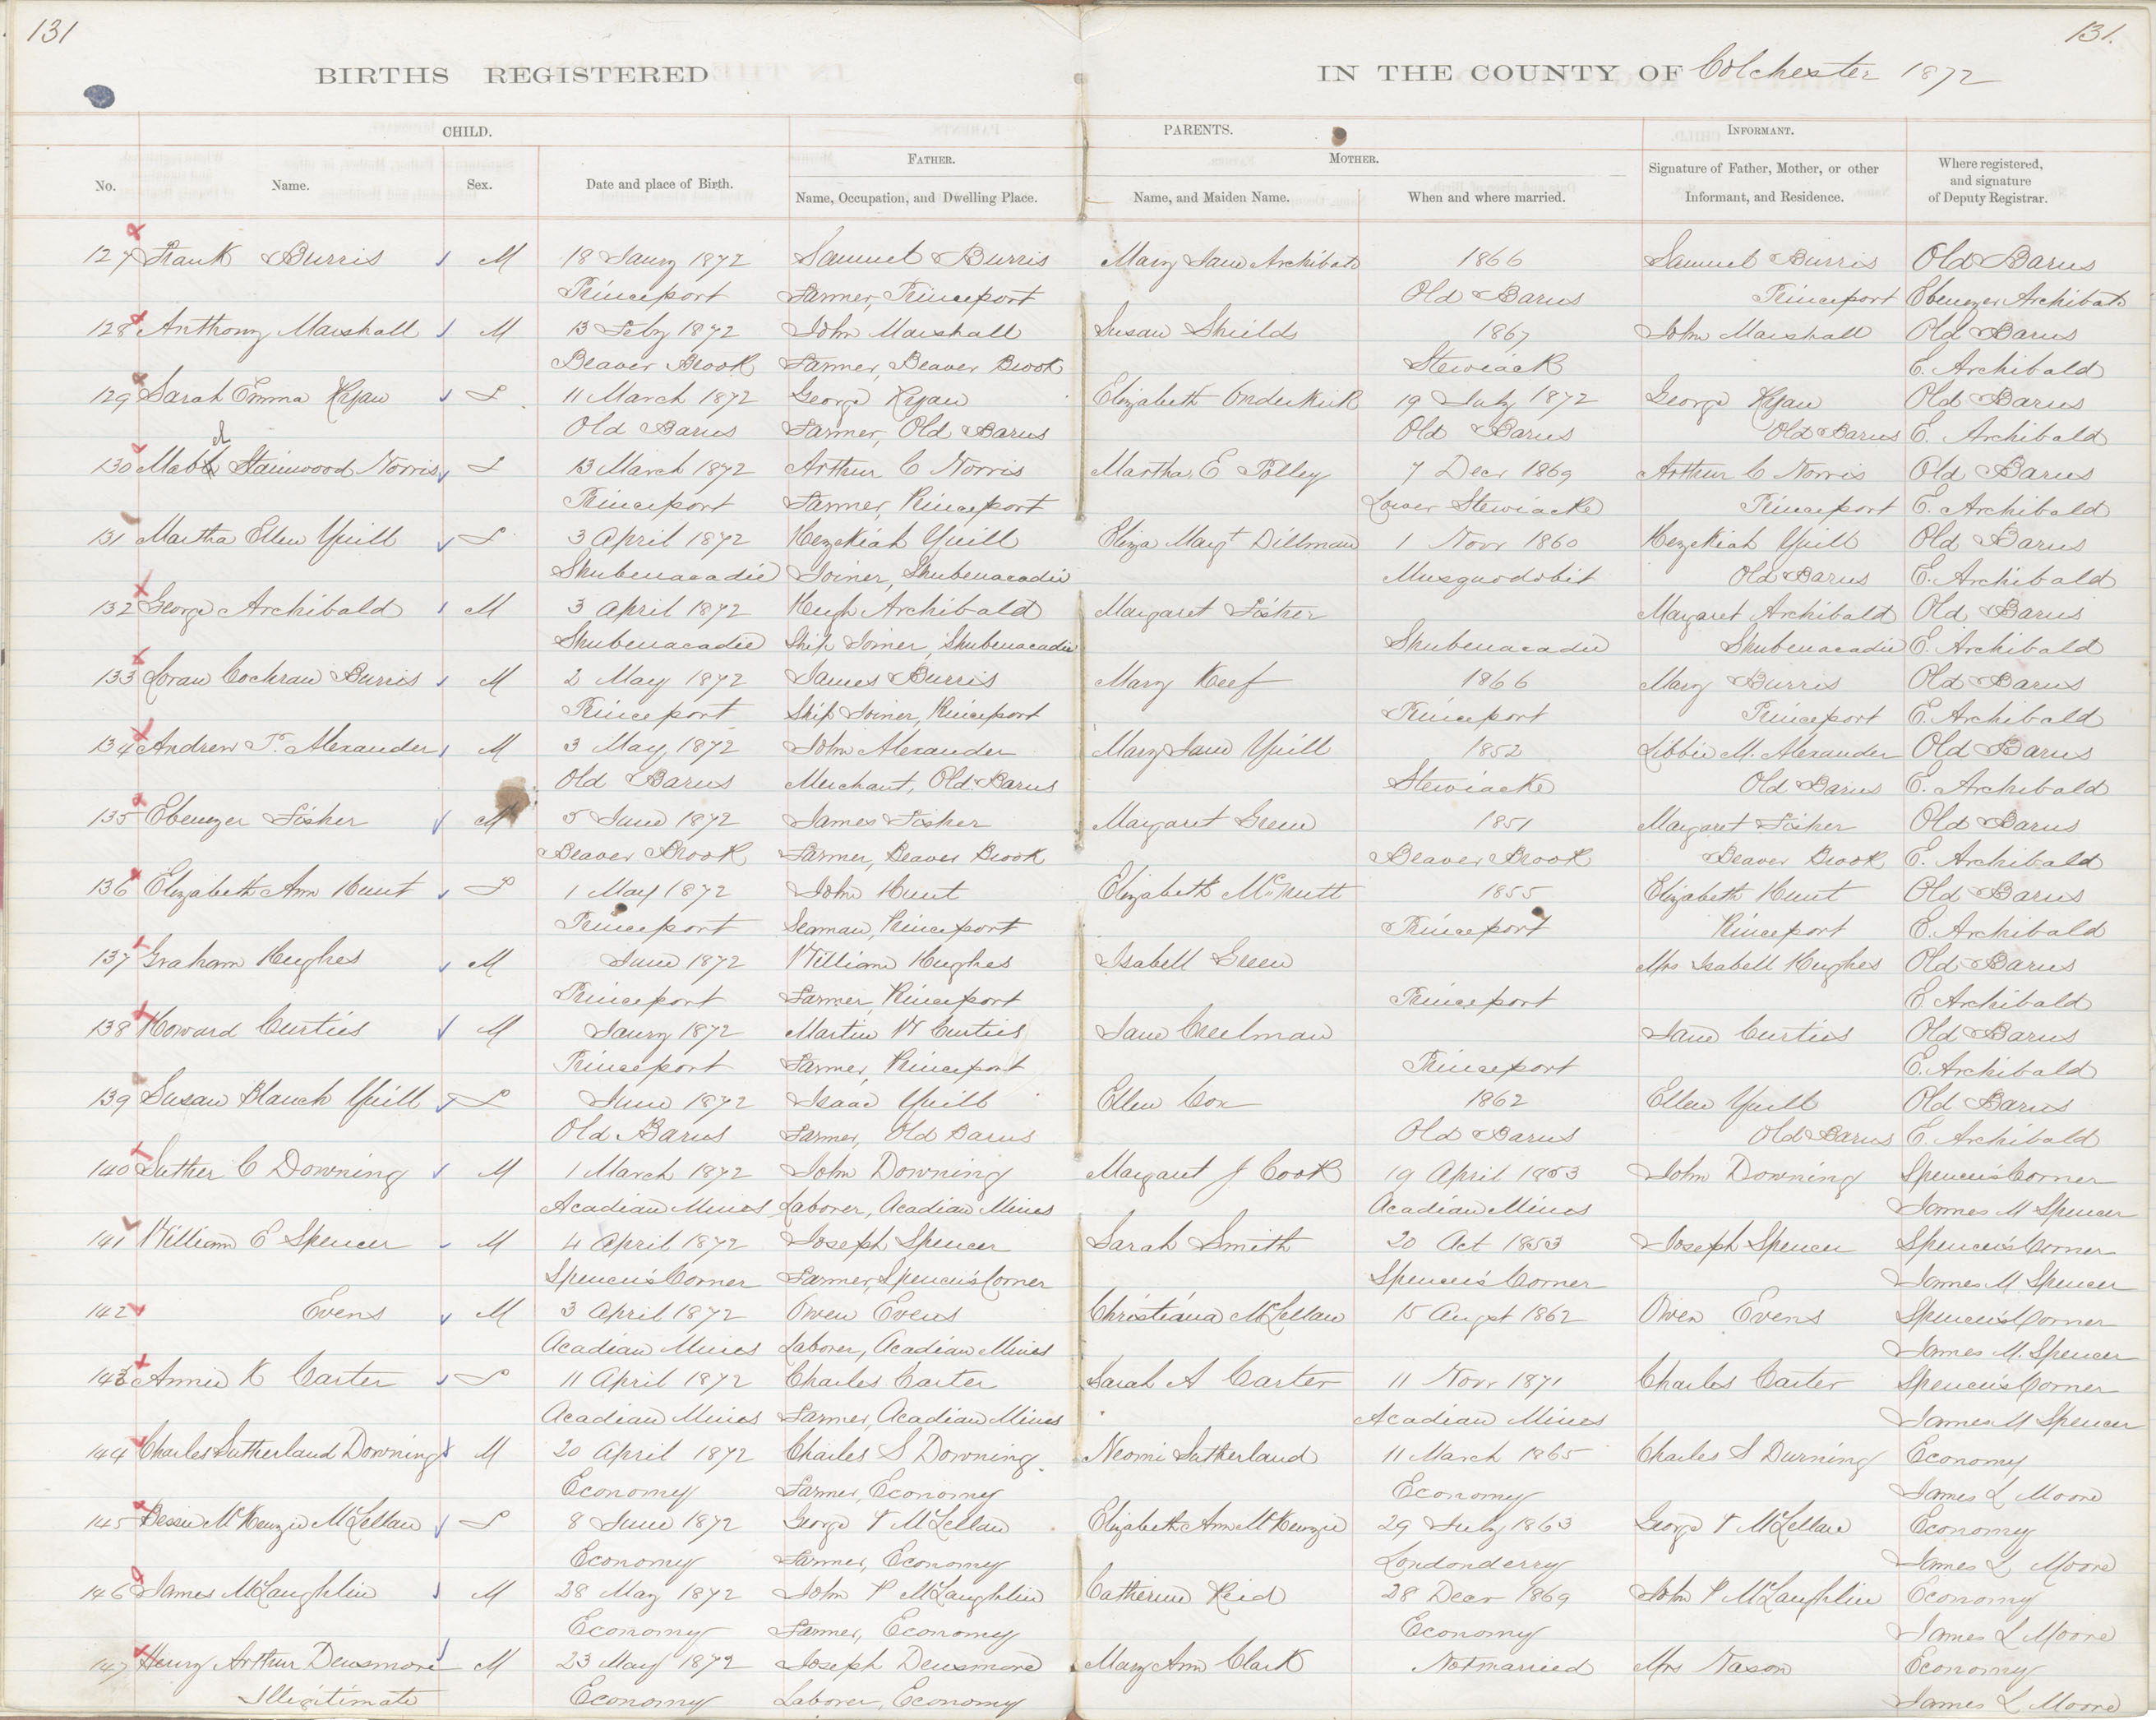 131
131.
BIRTHS REGISTERED IN THE COUNTY OF Colchester 1872
CHILD. PARENTS. INFORMANT.
FATHER. MOTHER.
No. Name. Sex. Date and place of Birth. Name, Occupation, and Dwelling Place. Name, and Maiden Name. When and where married. Signature of Father, Mother, or other Informant, and Residence. Where registered, and signature of Deputy Registrar.
127 Frank Burris M 18 Jany 1872 Samuel Burris Mary Jane Archibald 1866 Samuel Burris Old Barns
Princeport Farmer, Princeport Old Barns Princeport Ebenezer Archibald
128 Anthony Marshall M 13 Feby 1872 John Marshall Susan Shields 1867 John Marshall Old Barns
Beaver Brook Farmer, Beaver Brook Stewiack E. Archibald
129 Sarah Emma Ryan F 11 March 1872 George Ryan Elizabeth Onderkirk 19 July 1872 George Ryan Old Barns
Old Barns Farmer, Old Barns Old Barns Old Barns E. Archibald
130 Mabel Stainwood Norris F 13 March 1872 Arthur C Norris Martha E Polley 7 Decr 1869 Arthur C Norris Old Barns
Princeport Farmer, Princeport Lower Stewiacke Princeport E. Archibald
131 Martha Ellen Yuill F 3 April 1872 Hezekiah Yuill Eliza Margt Dillman 1 Novr 1860 Hezekiah Yuill Old Barns
Shubenacadie Joiner, Shubenacadie Musquodobit Old Barns E. Archibald
132 George Archibald M 3 April 1872 Hugh Archibald Margaret Fisher Margaret Archibald Old Barns
Shubenacadie Ship Joiner, Shubenacadie Shubenacadie Shubenacadie E. Archibald
133 Loran Cochran Burris M 2 May 1872 James Burris Mary Keef 1866 Mary Burris Old Barns
Princeport Ship Joiner, Princeport Princeport Princeport E. Archibald
134 Andrew T. Alexander M 3 May 1872 John Alexander Mary Jane Yuill 1852 Libbie M. Alexander Old Barns
Old Barns Merchant, Old Barns Stewiacke Old Barns E. Archibald
135 Ebenezer Fisher M 5 June 1872 James Fisher Margaret Green 1851 Margaret Fisher Old Barns
Beaver Brook Farmer, Beaver Brook Beaver Brook Beaver Brook E. Archibald
136 Elizabeth Ann Hunt F 1 May 1872 John Hunt Elizabeth McNutt 1855 Elizabeth Hunt Old Barns
Princeport Seaman, Princeport Princeport Princeport E. Archibald
137 Graham Hughes M June 1872 William Hughes Isabell Green Mrs Isabell Hughes Old Barns
Princeport Farmer, Princeport Princeport E Archibald
138 Howard Curties M Jany 1872 Martin W Curtis Jane Creelman Jane Curties Old Barns
Princeport Farmer, Princeport Princeport E. Archibald
139 Susan Blanch Yuill F June 1872 Isaac Yuill Ellen Cox 1862 Ellen Yuill Old Barns
Old Barns Farmer, Old Barns Old Barns Old Barns E. Archibald
140 Luther C Downing M 1 March 1872 John Downing Margaret J Cook 19 April 1853 John Downing Spencer's Corner
Acadian Mines Laborer, Acadian Mines Acadian Mines James M Spencer
141 William E Spencer M 4 April 1872 Joseph Spencer Sarah Smith 20 Oct 1853 Joseph Spencer Spencer's Corner
Spencer's Corner Farmer, Spencer's Corner Spencer's Corner James M Spencer
142 Evens M 3 April 1872 Owen Evens Christiana McLellan 15 Augst 1862 Owen Evens Spencer's Corner
Acadian Mines Laborer, Acadian Mines James M. Spencer
143 Annie K Carter F 11 April 1872 Charles Carter Sarah A Carter 11 Novr 1871 Charles Carter Spencer's Corner
Acadian Mines Farmer, Acadian Mines Acadian Mines James M Spencer
144 Charles Sutherland Downing M 20 April 1872 Charles S Downing Neomi Sutherland 11 March 1865 Charles S Durning Economy
Economy Farmer, Economy Economy James L Moore
145 Bessie McKenzie McLellan F 8 June 1872 George T McLellan Elizabeth Ann McKenzie 29 July 1863 George T McLellan Economy
Economy Farmer, Economy Londonderry James L Moore
146 James McLaughlin M 28 May 1872 John P McLaughlin Catherine Reid 28 Decr 1869 John P McLaughlin Economy
Economy Farmer, Economy Economy James L Moore
147 Henry Arthur Densmore M 23 May 1872 Joseph Densmore Mary Ann Clark Not married Mrs Nason Economy
Illegitimate Economy Laborer, Economy James L Moore